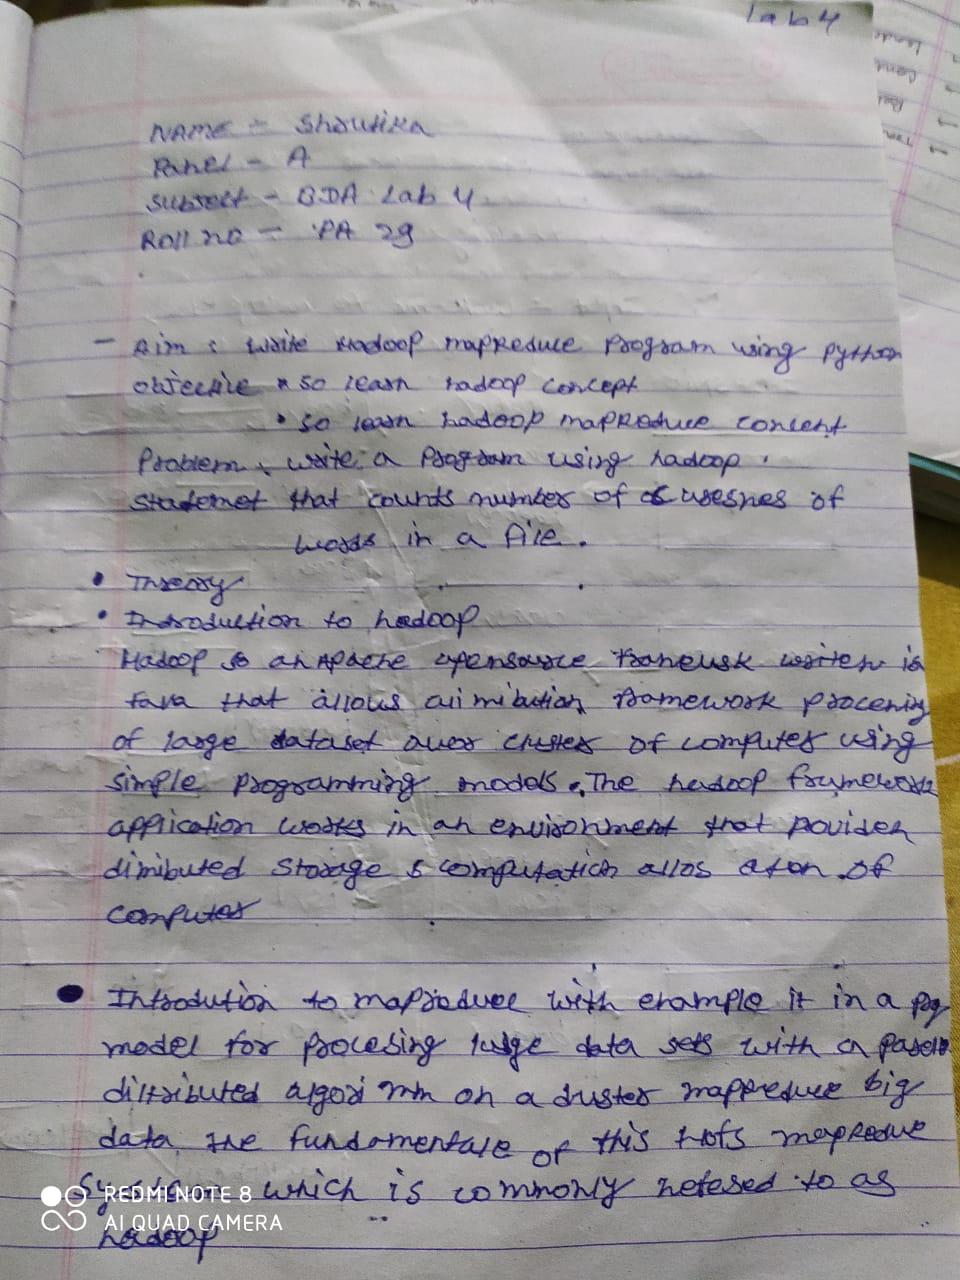 Lab 4
NAME - Shrutika
Panel - A
Subject - BDA Lab 4
Roll no - PA 29
- Aim : write Hadoop mapReduce program using python
objective * so learn hadoop concept
• so learn hadoop mapReduce concent
Problem write a Program using hadoop .
Statemet that counts number of of
words in a file .
• Theory
• Introduction to hadoop
Hadoop is an Apache opensource writen in
Java that allows framework procening
of large dataset over cluster of computer using
simple programming models . The hadoop framework
application works in an environment that provider
dimibuted Storage & computation allos of
computer
• Introdution to mapreduce with example it in a prog
model for procesing large data sets with a
distributed on a cluster mapreduce big
data, the fundamentale of this mapreduce
System which is commonly refesed to as
hadoop
REDMI NOTE 8
AI QUAD CAMERA